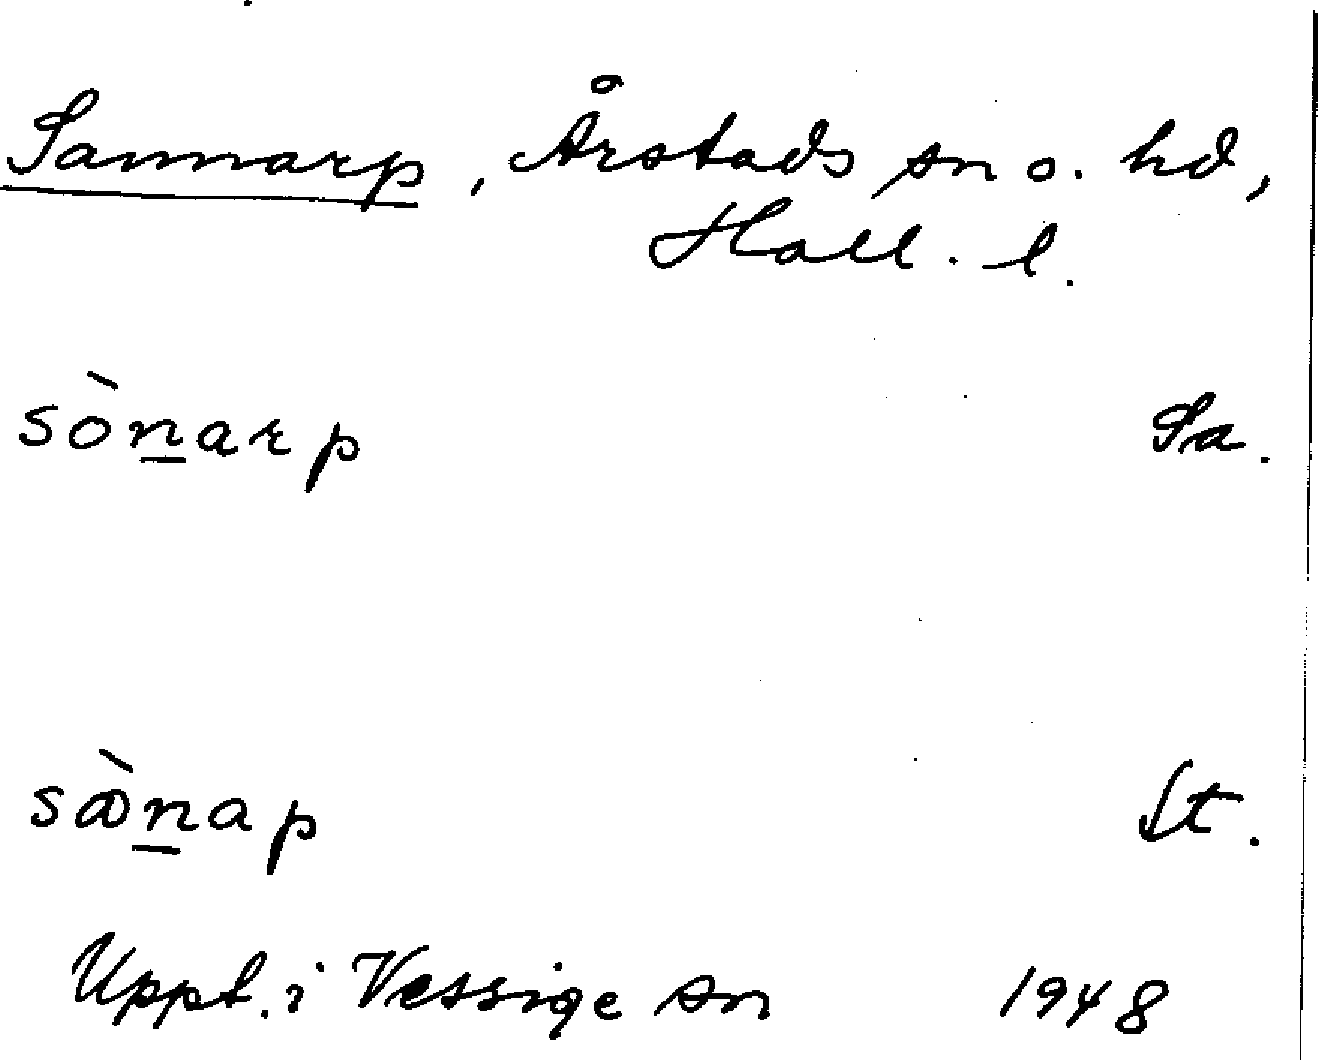 Sannarp, Årstads sn o. hd,
Hall. l.
sòn̲arp Sa.
sàn̲ap St.
Uppt. i Vessige sn 1948